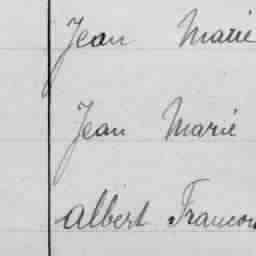 Jean Marie
Jean Marie
Albert